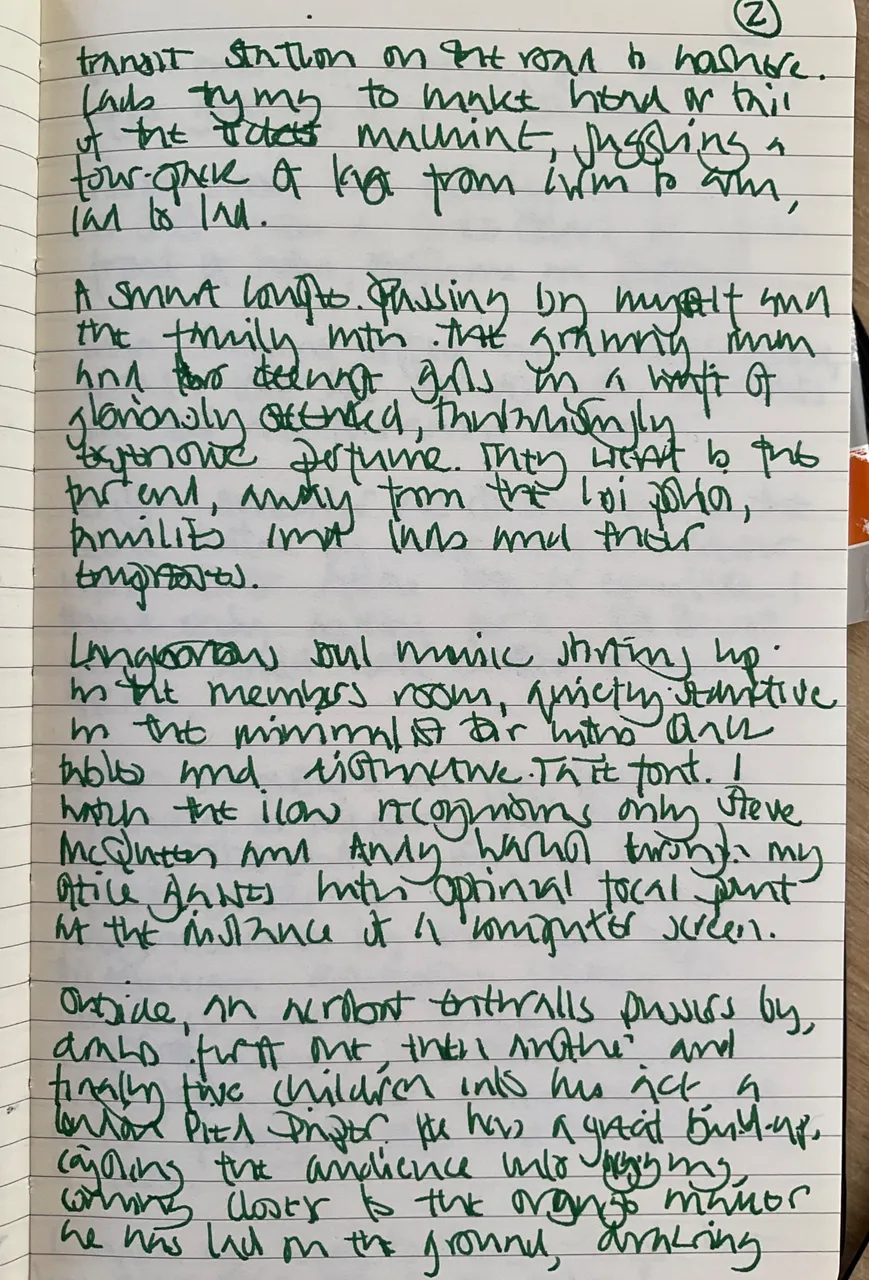 2
transit station on the road to nowhere.
Lads trying to make head or tail
of the tickets machine, juggling a
four-pack of from arm to arm,
lad to lad.
A smart couple passing by myself and
the family with the mum
and two teenage girls in a waft of
gloriously, thrillingly
expensive perfume. They went to the
far end, away from the,
families and lads and their
.
soul music starting up
in the members room, quietly
in the minimalist bar with dark
tables and distinctive Tate font. I
watch the slow recognising only Steve
McQueen and Andy Warhol through my
office glasses with optimal focal point
at the distance of a computer screen.
Outside, an acrobat enthralls passers by,
draws first one, then another and
finally five children into his act a
Pied Piper. He has a great build-up,
cajoling the audience into,
coming closer to the orange
he has laid on the ground,